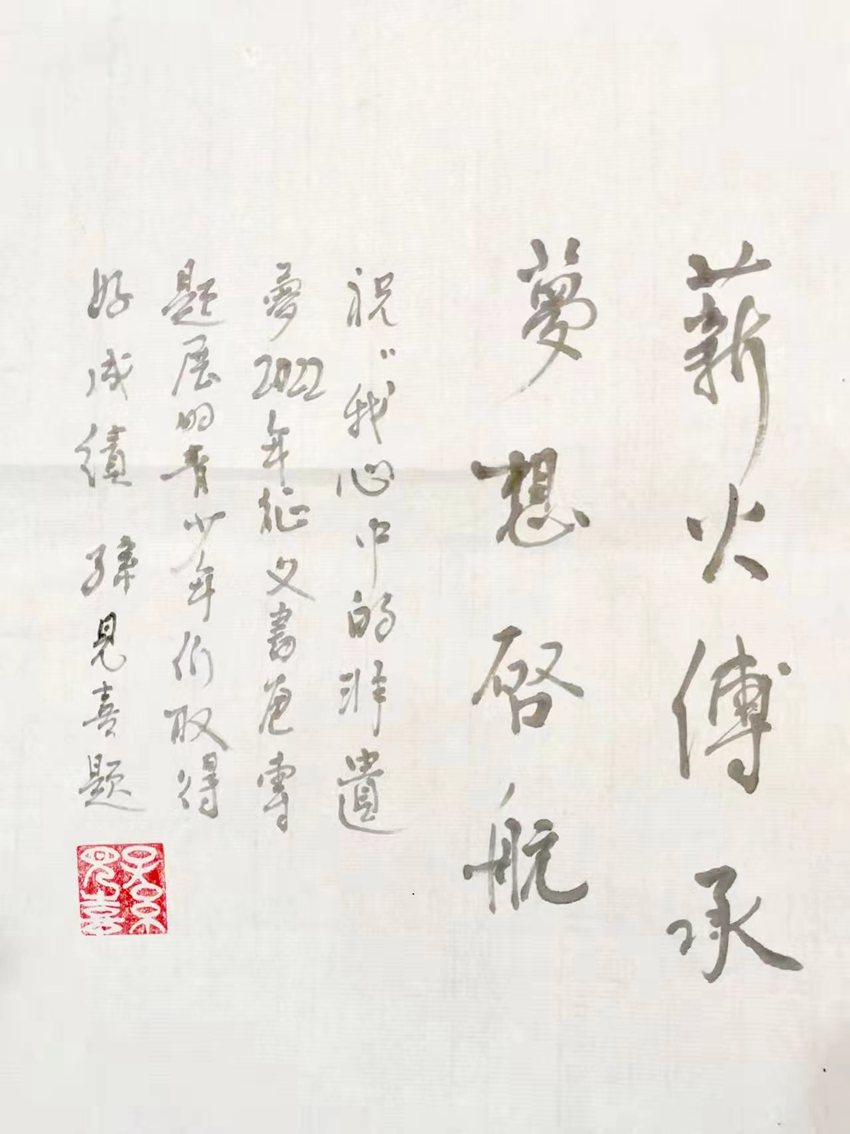 薪火傳承
夢想啓航
祝“我心中的非遺
夢2022年征文書画專
題展的青少年们取得
好成績 孫見喜題
孫見喜